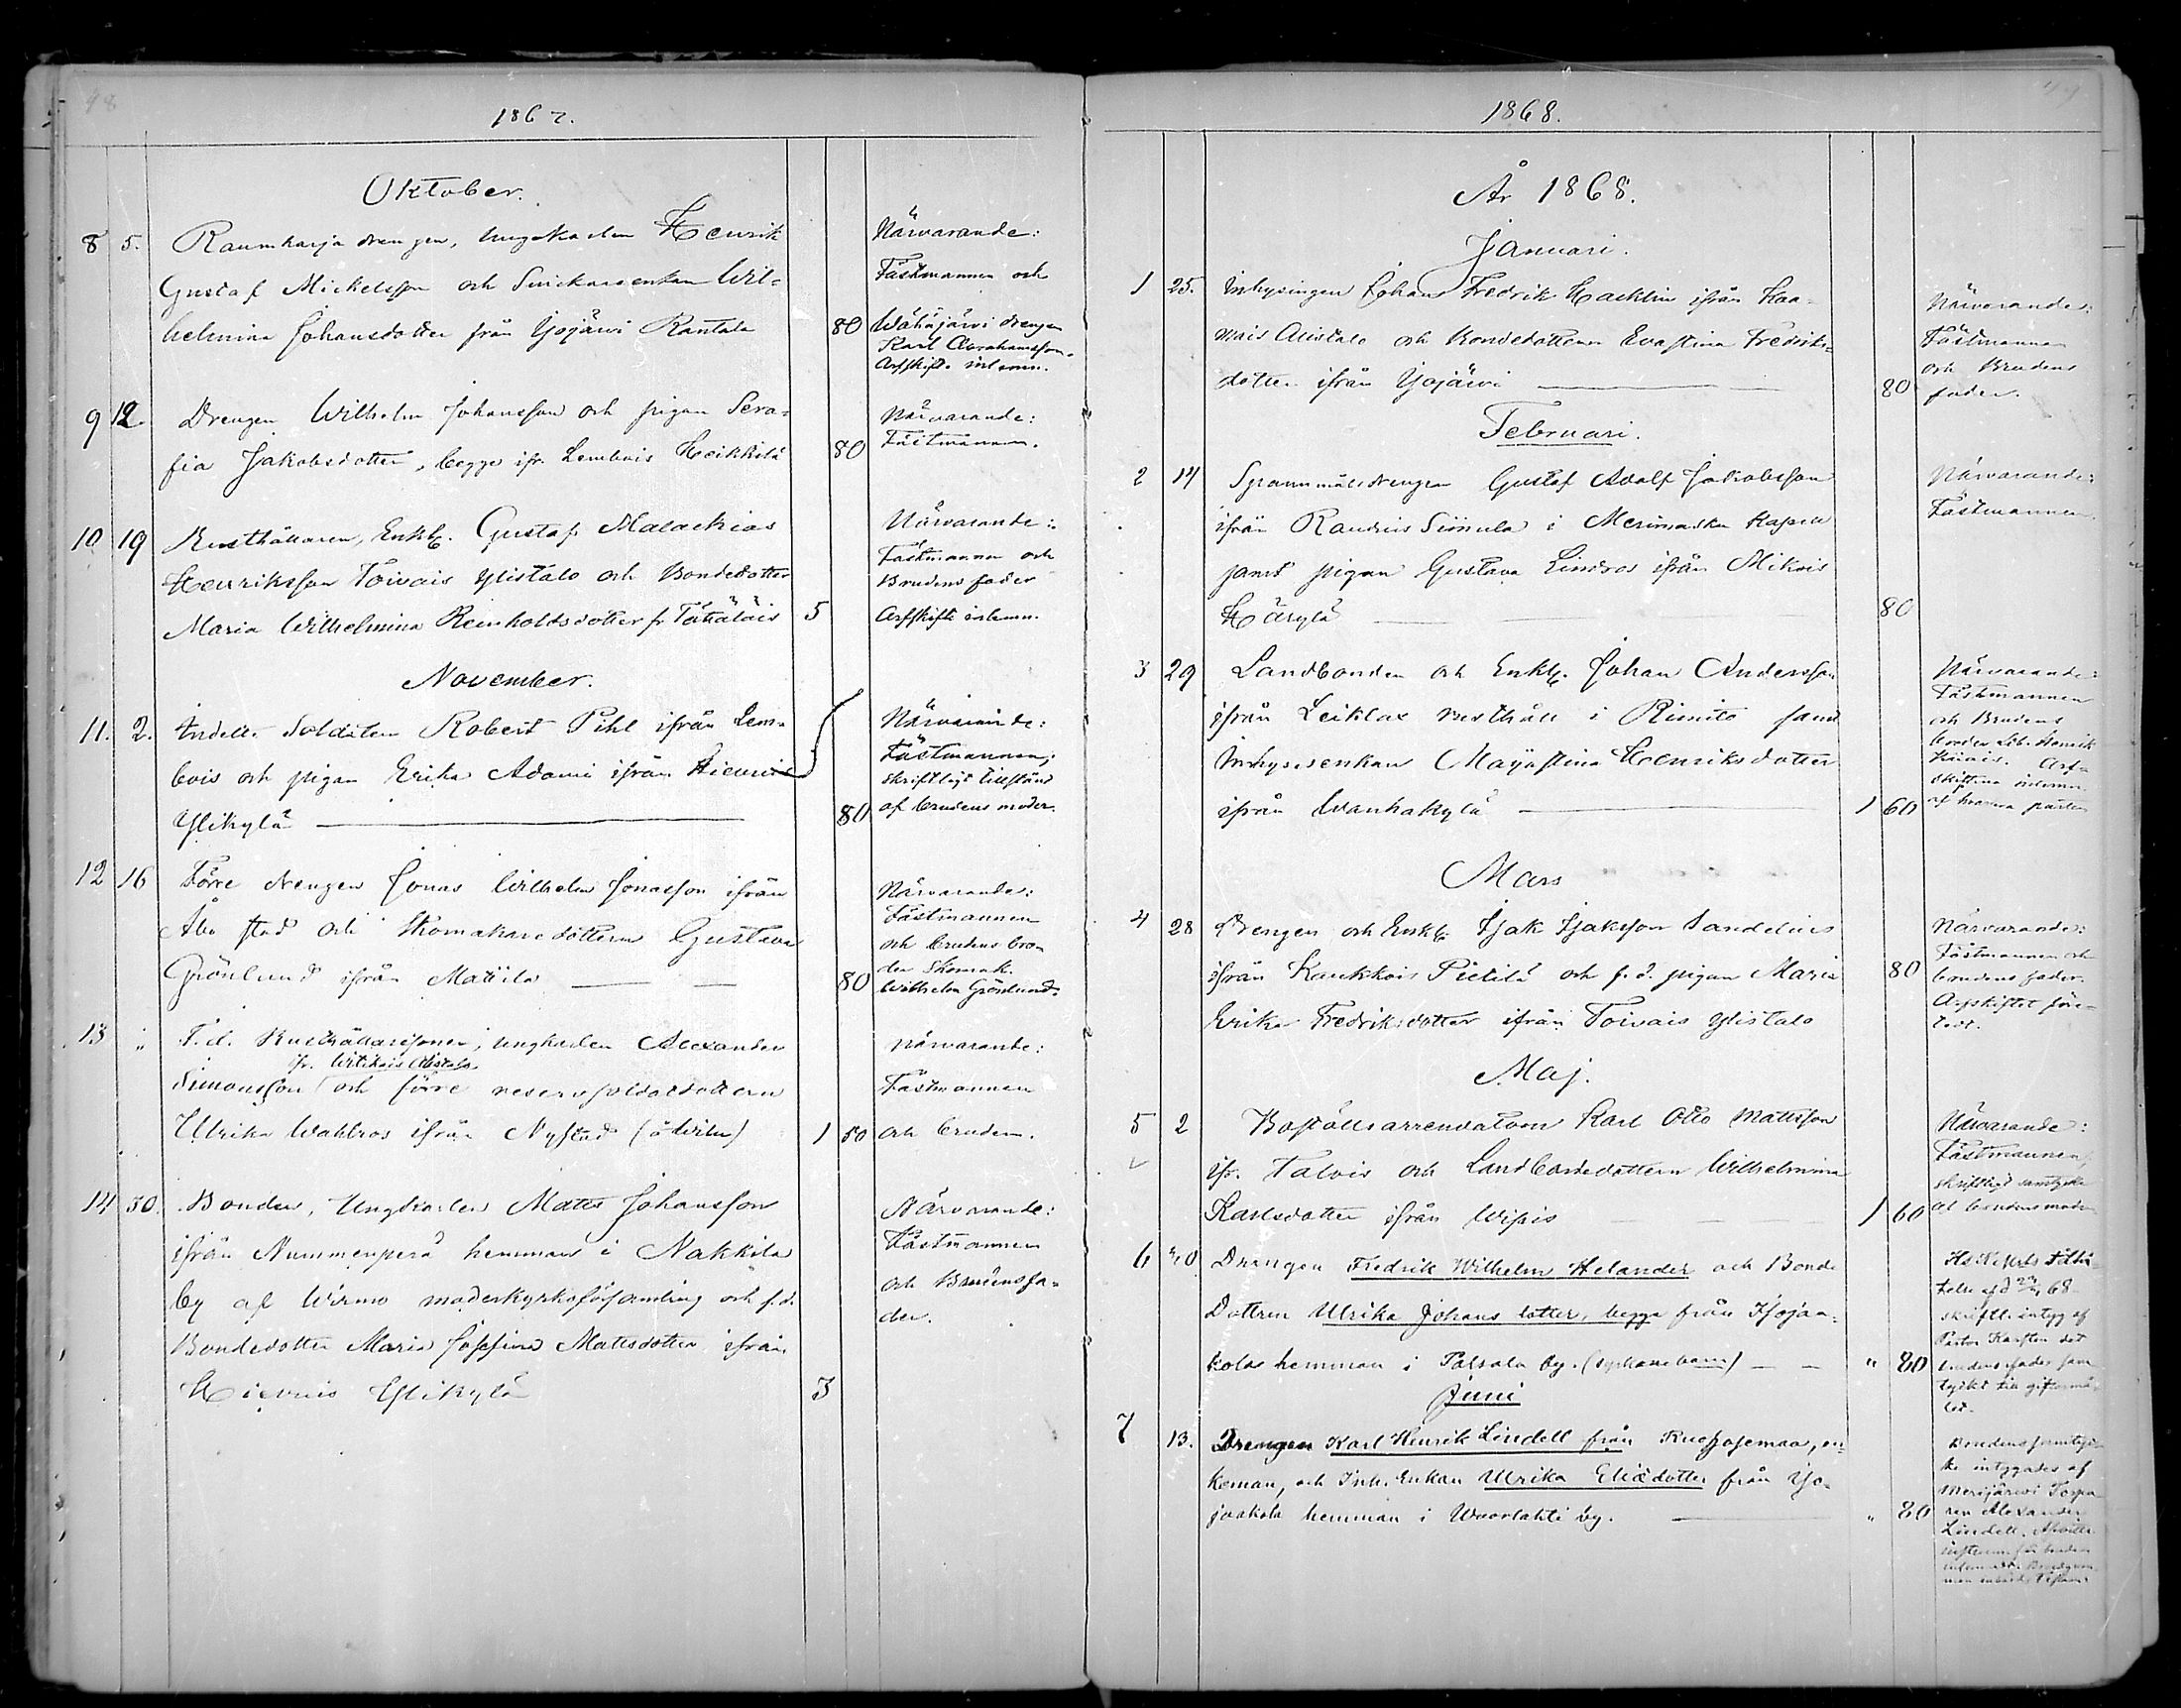 48
1867.
Oktober.
8 5. Raumkarja drengen, ungkarlen Henrik Närvarande:
Gustaf Mickelsson och Snickareenkan Wil- Fästmannen och
helmina Johansdotter från Yjojärvi Rantala 80 Wähäjärvi drengen
Karl Abrahamsson.
Arfskifte inlemn.
9 12. Drengen Wilhelm Johansson och pigan Sera- Närvarande:
fia Jakobsdotter, begge ifr. Lembois Heikkilä 80 Fästmannen.
10 19 Rusthållaren, Enkl. Gustaf Malackias Närvarande:
Henriksson Toivais Ylistalo och Bondedotter Fästmannen och
Brudens fader
Maria Wilhelmina Reinholdsdotter fr. Tättäläis 5 Arfskifte inlemn.
November.
11. 2. Indelte Soldaten Robert Pihl ifrån Lem- Närvarande:
bois och pigan Erika Adami ifrån Hievois Fästmannen,
skriftligt tillstånd
Ylikylä 80 af brudens moder.
12 16 Förre drengen Jonas Wilhelm Jonasson ifrån Närvarande:
Åbo stad och Skomakaredottern Gustava Fästmannen
och brudens bro-
Grönlund ifrån Mattila 80 der Skomak.
Wilhelm Grönlund.
13 " F.d. Rusthållaresonen, ungkarlen Alexander Närvarande:
ifr. Witikais Alistalo
Simonsson och förre reservsoldatdottern Fästmannen
Ulrika Wahlros ifrån Nystad 1 80 och bruden.
14 30. Bonden, Ungkarlen Matts Johansson Närvarande:
ifrån Nummenperä hemman i Nakkila Fästmannen
by af Wirmo moderkyrkoförsamling och f.d. och Brudens fa-
Bondedotter Maria Josefina Mattsdotter ifrån der.
Hievois Ylikylä 3
49
1868.
År 1868.
Januari.
1 25. Inhysingen Johan Fredrik Hacklin ifrån Kaa- Närvarande:
mais Alistalo och Bondedottern Evastina Fredriks- Fästmannen
och Brudens
dotter ifrån Yjojärvi 80 fader.
Februari.
2 14 Spannmålsdrengen Gustaf Adolf Jakobsson Närvarande:
ifrån Raudus Simula i Merimasku Kapell Fästmannen
samt pigan Gustava Lindros ifrån Mikois
Härylä 80
3 29 Landbonden och Enkl. Johan Andersson Närvarande:
Fästmannen
ifrån Leiklax rusthåll i Rimito samt och Brudens
broder Henrik
Inhysesenkan Majastina Henriksdotter Arf-
skiftena inlemn.
ifrån Wanhakylä 1 60 af parten
Mars
4 28 Drengen och Enkl. Isak Isaksson Sandelius Närvarande:
Fästmannen och
ifrån Kaukkois Pietilä och f.d. pigan Maria 80 brudens fader.
Arfskiftet före-
Erika Fredriksdotter ifrån Toivais Ylistalo tedt.
Maj.
5 2 Boställsarrendatorn Karl Otto Mattsson Närvarande:
ifr. Talvis och Landbondedottern Wilhelmina Fästmannen,
skriftligt samtycke
Karlsdotter ifrån Wisis 1 60 af brudens moder
6 Drengen Fredrik Wilhelm Helander och Bonde
68
Dottren Ulrika Johansdotter, begge från Isojaa- skriftl. intyg af
Pastor Karsten det
kola hemman i Palsala by. " 80 brudens fader sam-
tyckt till giftermå-
let.
Juni
7 13. Drengen Karl Henrik Lindell från en- Brudens samtyc-
ke intygades af
keman, och Inh. Enkan Ulrika Eliædotter från Yjo- Merijärvi Torpa-
jaakola hemman i Wuorlahti by. " 80 ren Alexander
Lindell.